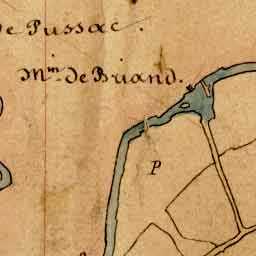 de Pussac.
Mⁱⁿ. de Briand.
P